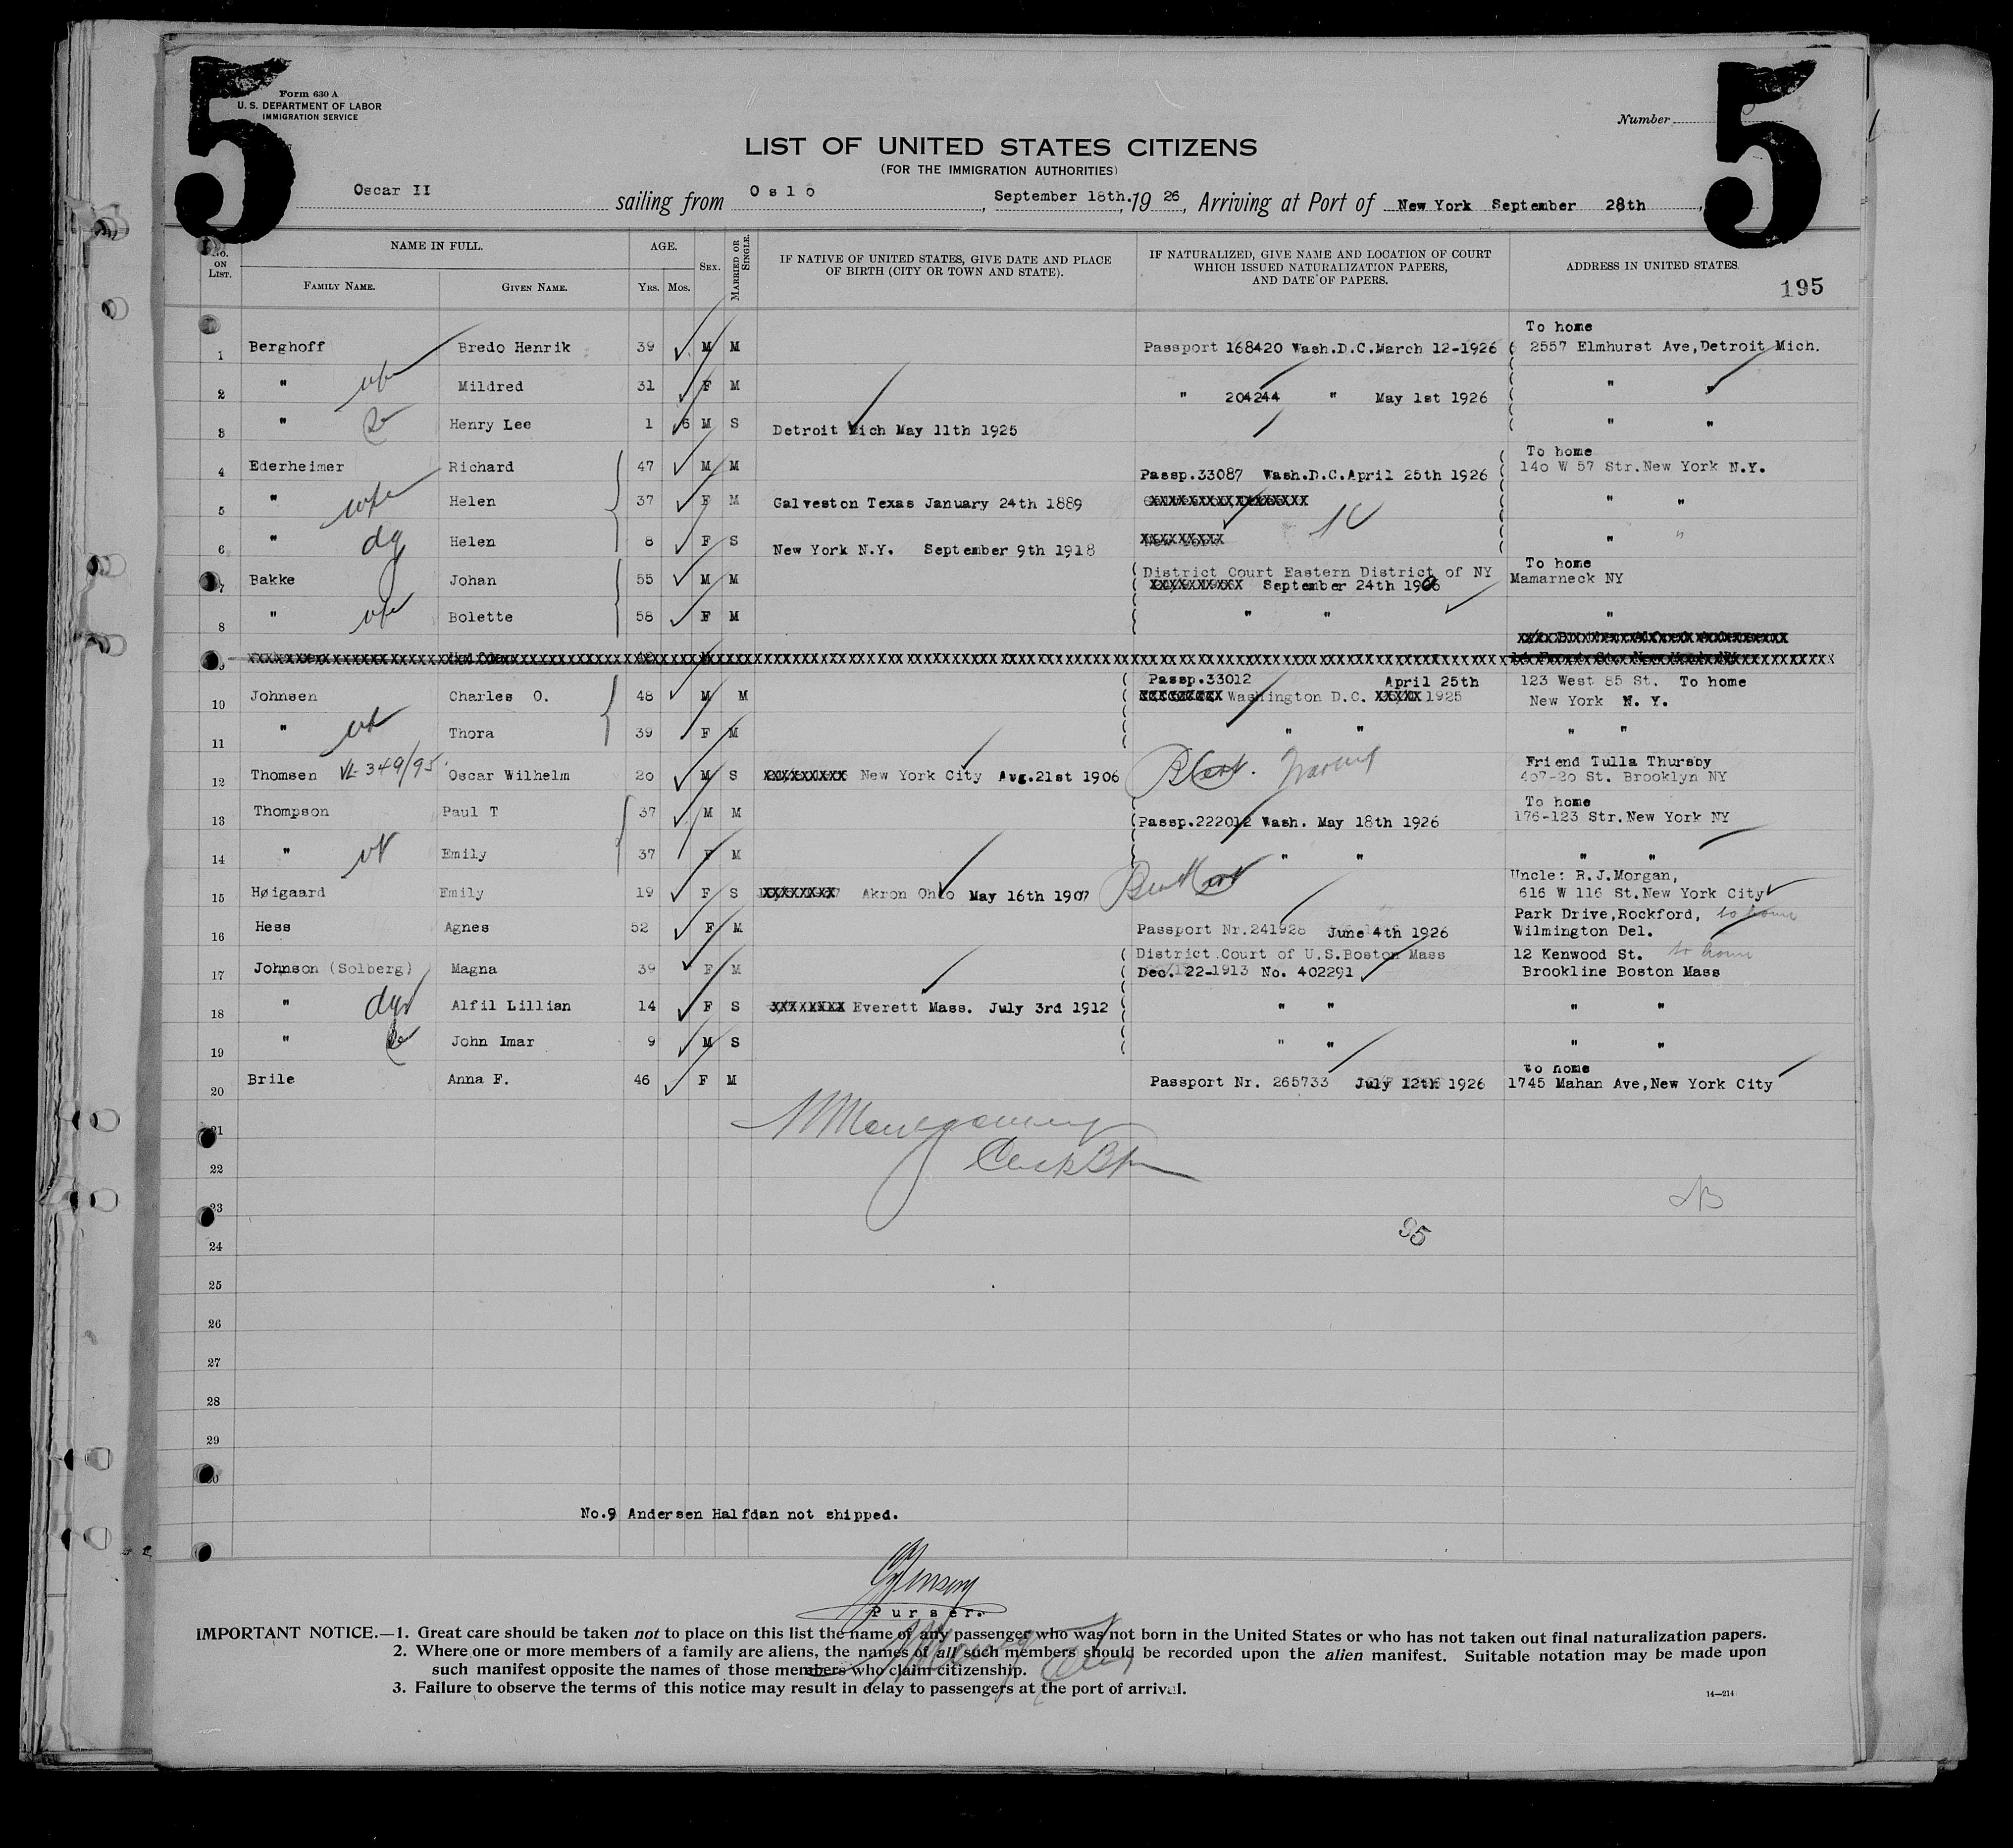 5
5
Form 630 A
U. S. DEPARTMENT OF LABOR
IMMIGRATION SERVICE
Number
LIST OF UNITED STATES CITIZENS
(FOR THE IMMIGRATION AUTHORITIES)
Oscar II sailing from Oslo, September 18th. 1926, Arriving at Port of New York September 28th,
No. ON LIST.
NAME IN FULL.
FAMILY NAME. GIVEN NAME.
AGE.
YRS. MOS.
SEX.
MARRIED OR SINGLE.
IF NATIVE OF UNITED STATES, GIVE DATE AND PLACE OF BIRTH (CITY OR TOWN AND STATE).
IF NATURALIZED, GIVE NAME AND LOCATION OF COURT WHICH ISSUED NATURALIZATION PAPERS, AND DATE OF PAPERS.
ADDRESS IN UNITED STATES
195
To home
1 Berghoff Bredo Henrik 39 M M Passport 168420 Wash.D.C.March 12-1926 2557 Elmhurst Ave,Detroit Mich.
2 " wf Mildred 31 F M " 204244 " May 1st 1926 " "
3 " Henry Lee 1 6 M S Detroit Mich May 11th 1925 " "
To home
4 Ederheimer Richard 47 M M Passp.33087 Wash.D.C.April 25th 1926 140 W 57 Str.New York N.Y.
5 " wfe Helen 37 F M Galveston Texas January 24th 1889 " "
6 " dg Helen 8 F S New York N.Y. September 9th 1918 " "
District Court Eastern District of NY To home
7 Bakke Johan 55 M M September 24th 1906 Mamarneck NY
8 " wfe Bolette 58 F M " " "
9
Passp.33012 April 25th
10 Johnsen Charles O. 48 M M Washington D.C. 1925 123 West 85 St. To home
New York N. Y.
11 " wf Thora 39 F M " " " "
12 Thomsen VL 349/95 Oscar Wilhelm 20 M S New York City Aug.21st 1906 Friend Tulla Thursby
407-20 St. Brooklyn NY
To home
13 Thompson Paul T 37 M M Passp.222012 Wash. May 18th 1926 176-123 Str.New York NY
14 " wf Emily 37 F M " " " "
Uncle: R.J.Morgan,
15 Høigaard Emily 19 F S Akron Ohio May 16th 1907 616 W 116 St.New York City
Park Drive,Rockford, to home
16 Hess Agnes 52 F M Passport Nr.241928 June 4th 1926 Wilmington Del.
District Court of U.S.Boston Mass 12 Kenwood St. to home
17 Johnson (Solberg) Magna 39 F M Dec. 22-1913 No. 402291 Brookline Boston Mass
18 " Alfil Lillian 14 F S Everett Mass. July 3rd 1912 " " " "
19 " John Imar 9 M S " " " "
to home
20 Brile Anna F. 46 F M Passport Nr. 265733 July 12th 1926 1745 Mahan Ave,New York City
21
22
23
95
24
25
26
27
28
29
30
No.9 Andersen Halfdan not shipped.
Purser.
IMPORTANT NOTICE.—1. Great care should be taken not to place on this list the name of any passenger who was not born in the United States or who has not taken out final naturalization papers.
2. Where one or more members of a family are aliens, the names of all such members should be recorded upon the alien manifest. Suitable notation may be made upon
such manifest opposite the names of those members who claim citizenship.
3. Failure to observe the terms of this notice may result in delay to passengers at the port of arrival.
14—214